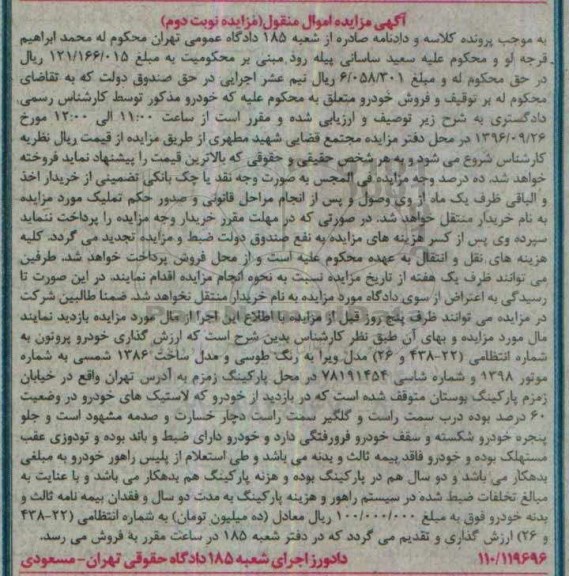 آگهی مزایده اموال منقول(مزایده نوبت دوم)
به موجب پرونده کلاسه و دادنامه صادره از شعبه ۱۸۵ دادگاه عمومی تهران محکوم له محمد ابراهیم
فرجه لو و محکوم علیه سعید ساسانی پیله رود مبنی بر محکومیت به مبلغ ۱۲۱/۱۶۶/۰۱۵ ریال
در حق محکوم له و مبلغ ۶/۰۵۸/۳۰۱ ریال نیم عشر اجرایی در حق صندوق دولت که به تقاضای
محکوم له بر توقیف و فروش خودرو متعلق به محکوم علیه که خودرو مذکور توسط کارشناس رسمی
دادگستری به شرح زیر توصیف و ارزیابی شده و مقرر است از ساعت ۱۱:۰۰ الی ۱۲:۰۰ مورخ
۱۳۹۶/۰۹/۲۶ در محل دفتر مزایده مجتمع قضایی شهید مطهری از طریق مزایده از قیمت ریال نظریه
کارشناس شروع می شود و به هر شخص حقیقی و حقوقی که بالاترین قیمت را پیشنهاد نماید فروخته
خواهد شد. ده درصد وجه مزایده فی المجس به صورت وجه نقد یا چک بانکی تضمینی از خریدار اخذ
و الباقی ظرف یک ماه از وی وصول و پس از انجام مراحل قانونی و صدور حکم تملیک مورد مزایده
به نام خریدار منتقل خواهد شد. در صورتی که در مهلت مقرر خریدار وجه مزایده را پرداخت ننماید
سپرده وی پس از کسر هزینه های مزایده به نفع صندوق دولت ضبط و مزایده تجدید می گردد. کلیه
هزینه های نقل و انتقال به عهده محکوم علیه است و از محل فروش پرداخت خواهد شد. طرفین
می توانند ظرف یک هفته از تاریخ مزایده نسبت به نحوه انجام مزایده اقدام نمایند. در این صورت تا
رسیدگی به اعتراض از سوی دادگاه مورد مزایده به نام خریدار منتقل نخواهد شد. ضمنا طالبین شرکت
در مزایده می توانند ظرف پنج روز قبل از مزایده با اطلاع این اجرا از مال مورد مزایده بازدید نمایند
مال مورد مزایده و بهای آن طبق نظر کارشناس بدین شرح است که ارزش گذاری خودرو پرونون به
شماره انتظامی (۲۲-۴۳۸ و ۲۶) مدل ویرا به رنگ طوسی و مدل ساخت ۱۳۸۶ شمسی به شماره
موتور ۱۳۹۸ و شماره شاسی ۷۸۱۹۱۴۵۴ در محل پارکینگ زمزم به آدرس تهران واقع در خیابان
زمزم پارکینگ بوستان متوقف شده است که در بازدید از خودرو که لاستیک های خودرو در وضعیت
۶۰ درصد بوده درب سمت راست و گلگیر سمت راست دچار خسارت و صدمه مشهود است و جلو
پنجره خودرو شکسته و سقف خودرو فرورفتگی دارد و خودرو دارای ضبط و باند بوده و تودوزی عقب
مستهلک بوده و خودرو فاقد بیمه ثالث و بدنه می باشد و طی استعلام از پلیس راهور خودرو به مبلغی
بدهکار می باشد و دو سال هم در پارکینگ بوده و هزنه پارکینگ هم بدهکار می باشد و با عنایت به
مبالغ تخلفات ضبط شده در سیستم راهور و هزینه پارکینگ به مدت دو سال و فقدان بیمه نامه ثالث و
بدنه خودرو فوق به مبلغ ۱۰۰/۰۰۰/۰۰۰ ریال معادل (ده میلیون تومان) به شماره انتظامی (۲۲-۴۳۸
و ۲۶) ارزش گذاری و تقدیم می گردد که در دفتر شعبه ۱۸۵ در ساعت مقرر به فروش می رسد.
۱۱۰/۱۱۹۶۹۶ دادورز اجرای شعبه ۱۸۵ دادگاه حقوقی تهران - مسعودی